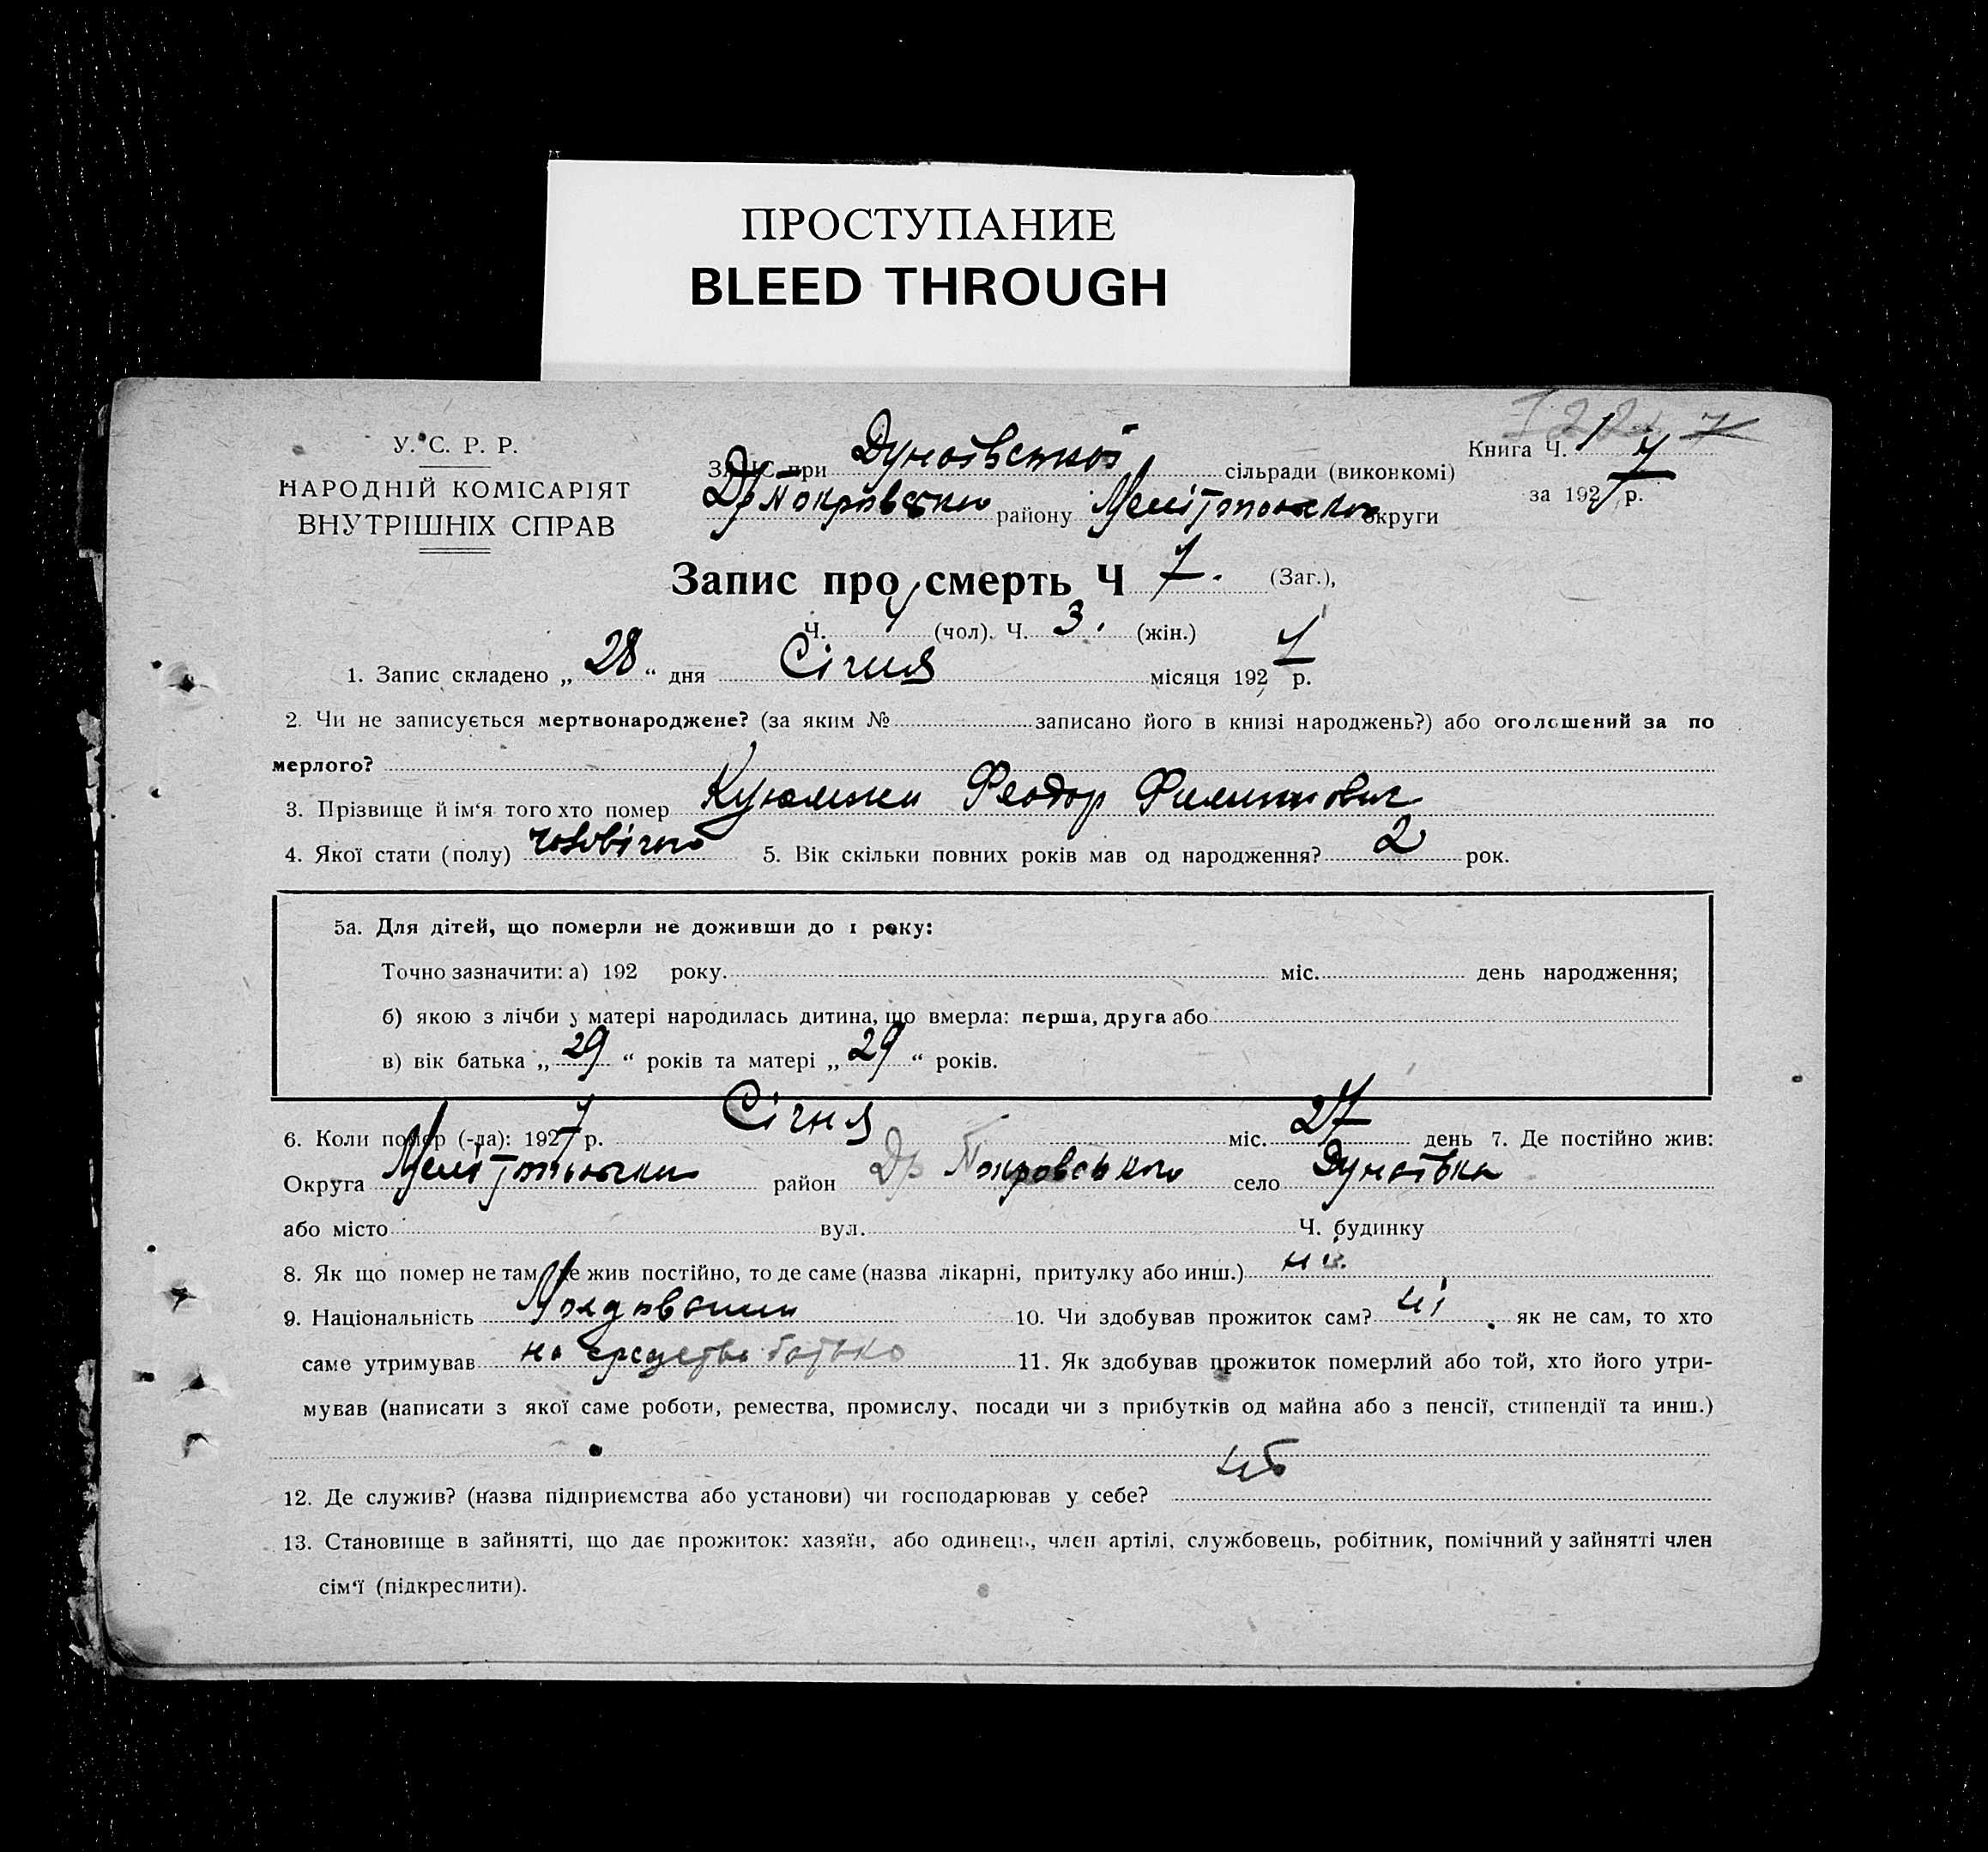 ПРОСТУПАНИЕ
BLEED THROUGH
У. С. Р. Р.
НАРОДНІЙ КОМІСАРІЯТ
ВНУТРІШНІХ СПРАВ
ЗАГС при Дунаївській сільради (виконкомі)
Покровського району Мелітопольської округи
Книга Ч. 1
за 1927 р.
Запис про смерть Ч 7. (Заг.),
Ч. 4 (чол). Ч. 3. (жін.)
1. Запис складено „ 28 “ дня Січня місяця 1927 р.
2. Чи не записується мертвонароджене? (за яким № записано його в книзі народжень?) або оголошений за по
мерлого?
3. Прізвище й ім‘я того хто помер Феодор
4. Якої стати (полу) чоловічої 5. Вік скільки повних років мав од народження? 2 рок.
5а. Для дітей, що померли не доживши до 1 року:
Точно зазначити: а) 192 року. міс. день народження;
б) якою з лічби у матері народилась дитина, що вмерла: перша, друга або
в) вік батька „ 29 “ років та матері „ 29 “ років.
6. Коли помер (-ла): 1927 р. Січня міс. 27 день 7. Де постійно жив:
Округа район Др Покровського село Дунаївка
або місто вул. Ч. будинку
8. Як що помер не там де жив постійно, то де саме (назва лікарні, притулку або инш.)
9. Національність 10. Чи здобував прожиток сам? ні як не сам, то хто
саме утримував на средства батько 11. Як здобував прожиток померлий або той, хто його утри-
мував (написати з якої саме роботи, ремества, промислу, посади чи з прибутків од майна або з пенсії, стипендії та инш.)
12. Де служив? (назва підприємства або установи) чи господарював у себе?
13. Становище в зайнятті, що дає прожиток: хазяїн, або одинець, член артілі, службовець, робітник, помічний у зайнятті член
сім‘ї (підкреслити).